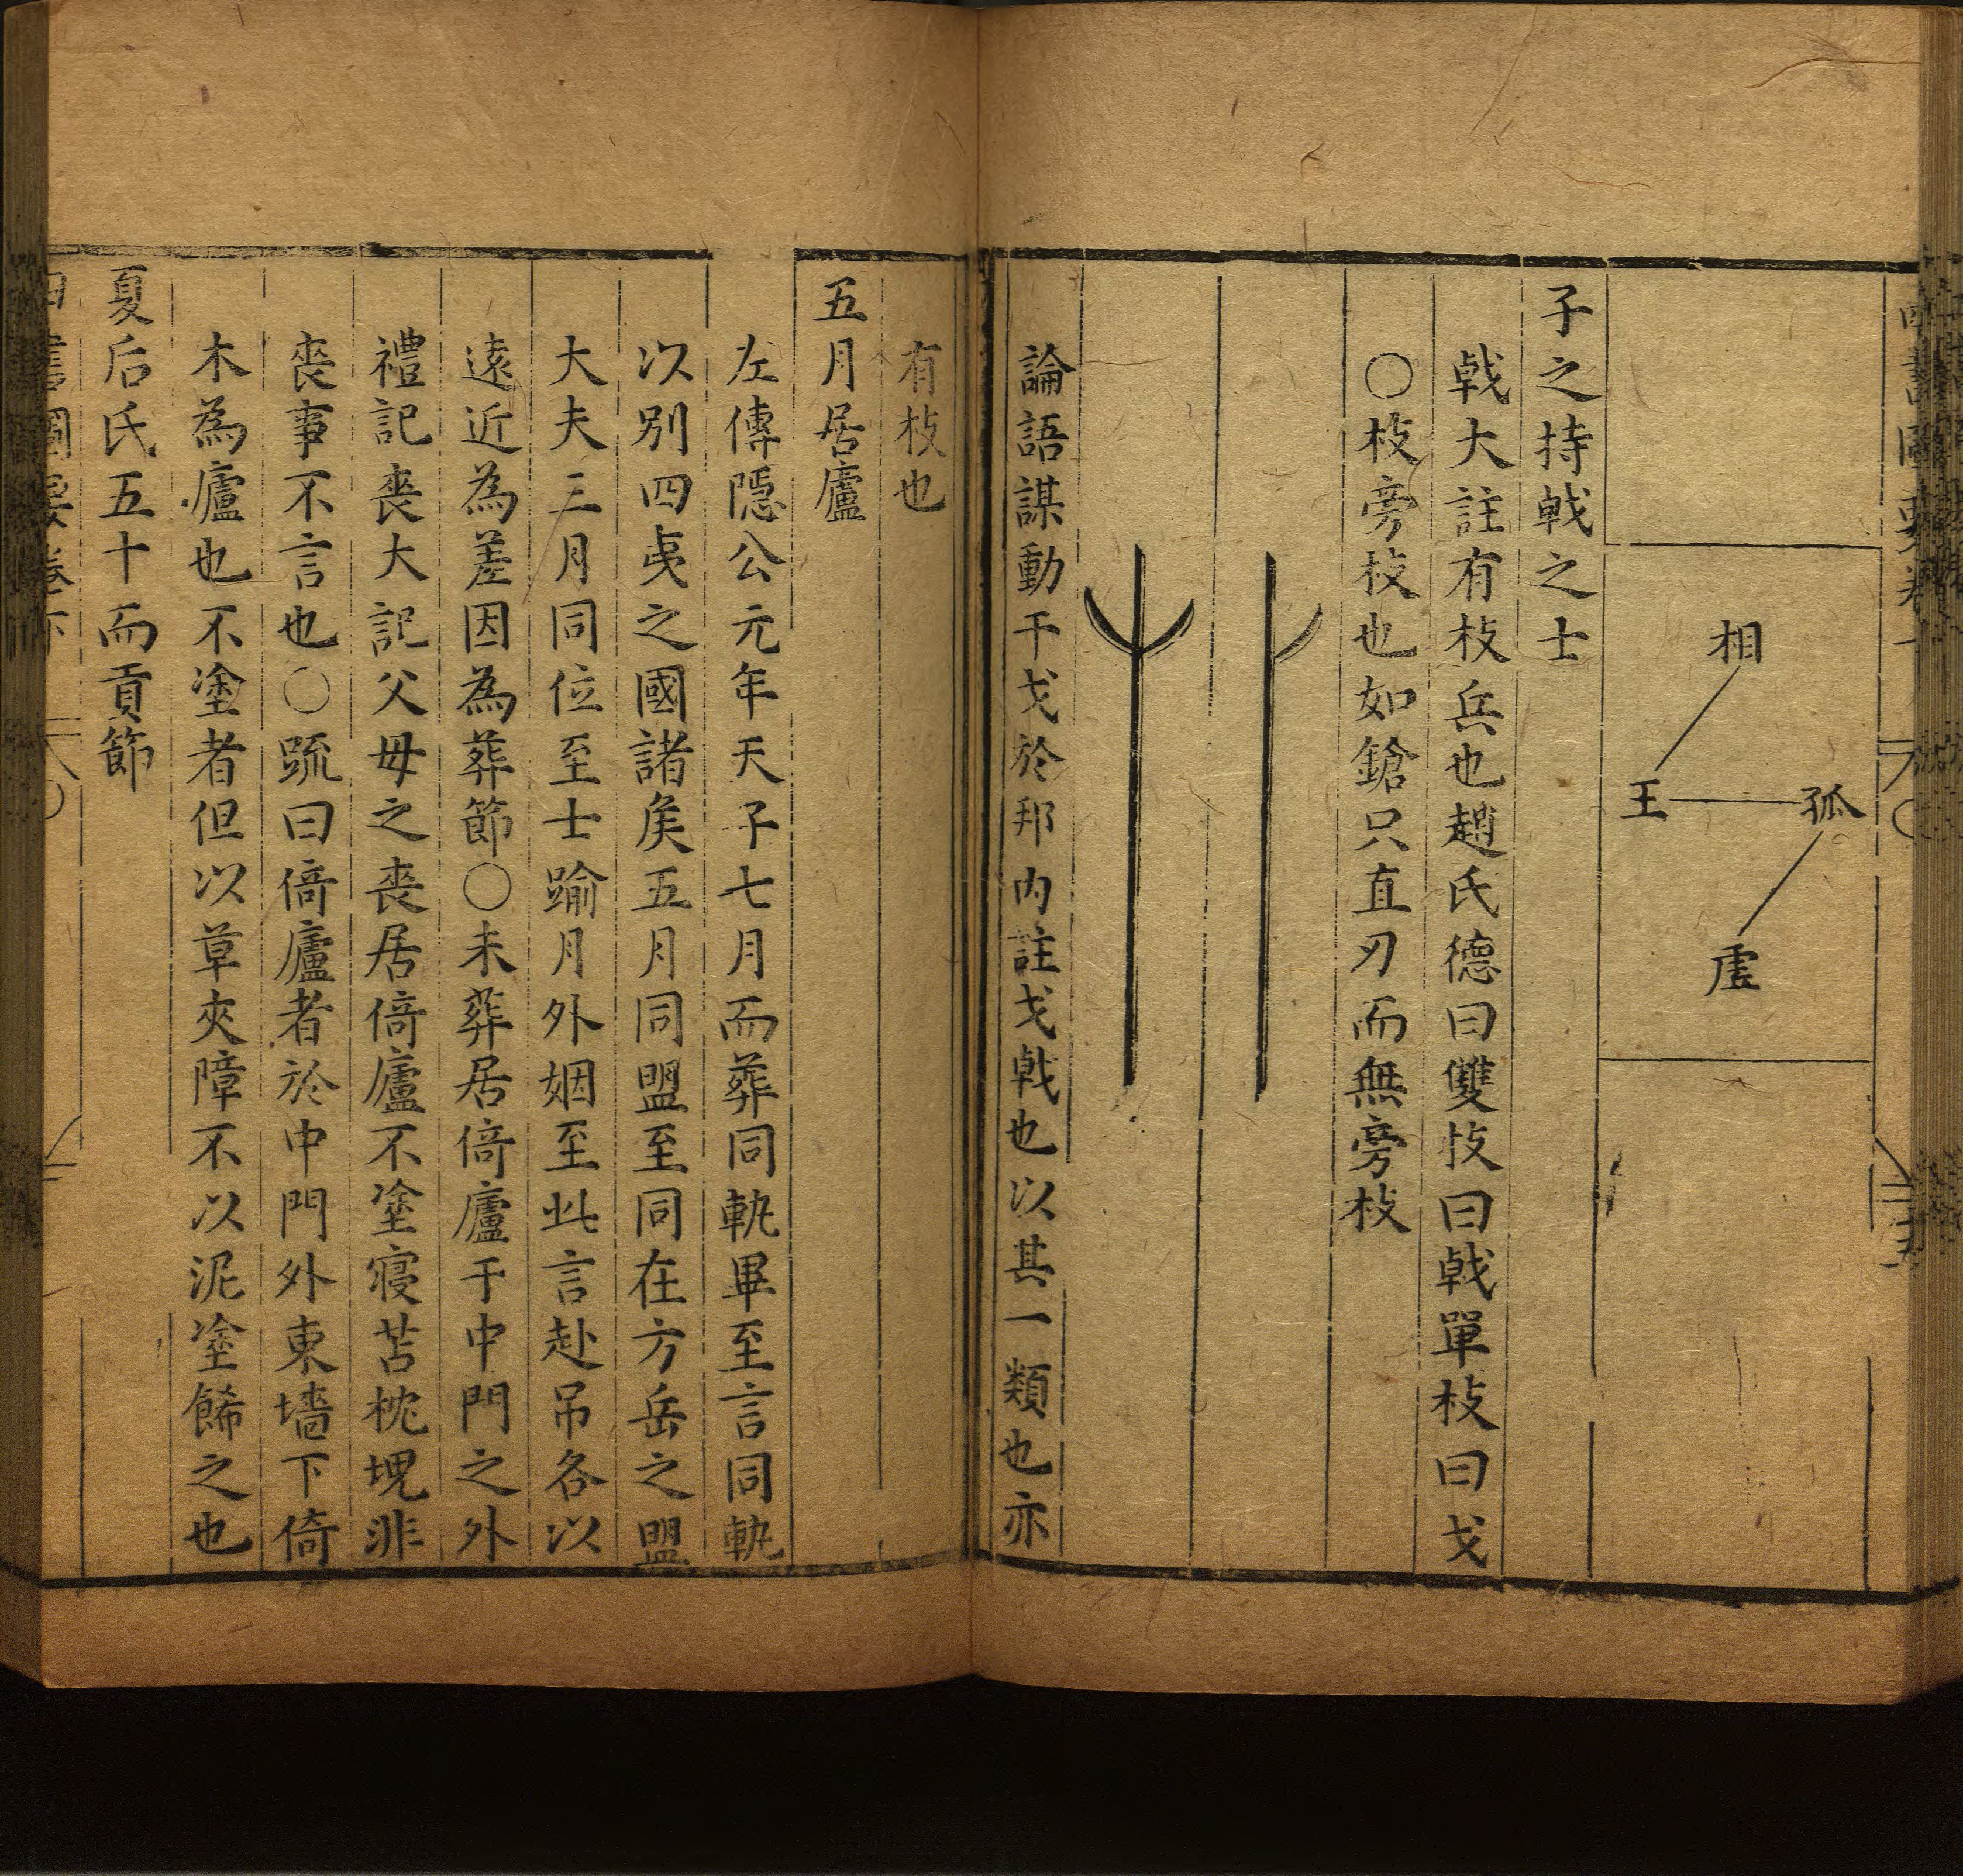 相
王
孤
虛
子之持戟之士
戟大註有枝兵也趙氏德曰雙枝曰戟單枝曰戈
○枝旁枝也如鎗只直刃而無旁枝
論語謀動干戈於邦内註戈戟也以其一類也亦
有枝也
五月居廬
左傳隱公元年天子七月而葬同軌畢至言同軌
以別四夷之國諸侯五月同盟至同在方岳之盟
大夫三月同位至士踰月外姻至此言赴吊各以
遠近為差因為葬節○未葬居倚廬于中門之外
禮記喪大記父母之喪居倚廬不塗寢苫枕塊非
喪事不言也○疏曰倚廬者於中門外東墻下倚
木為廬也不塗者但以草夾障不以泥塗餙之也
夏后氏五十而貢節